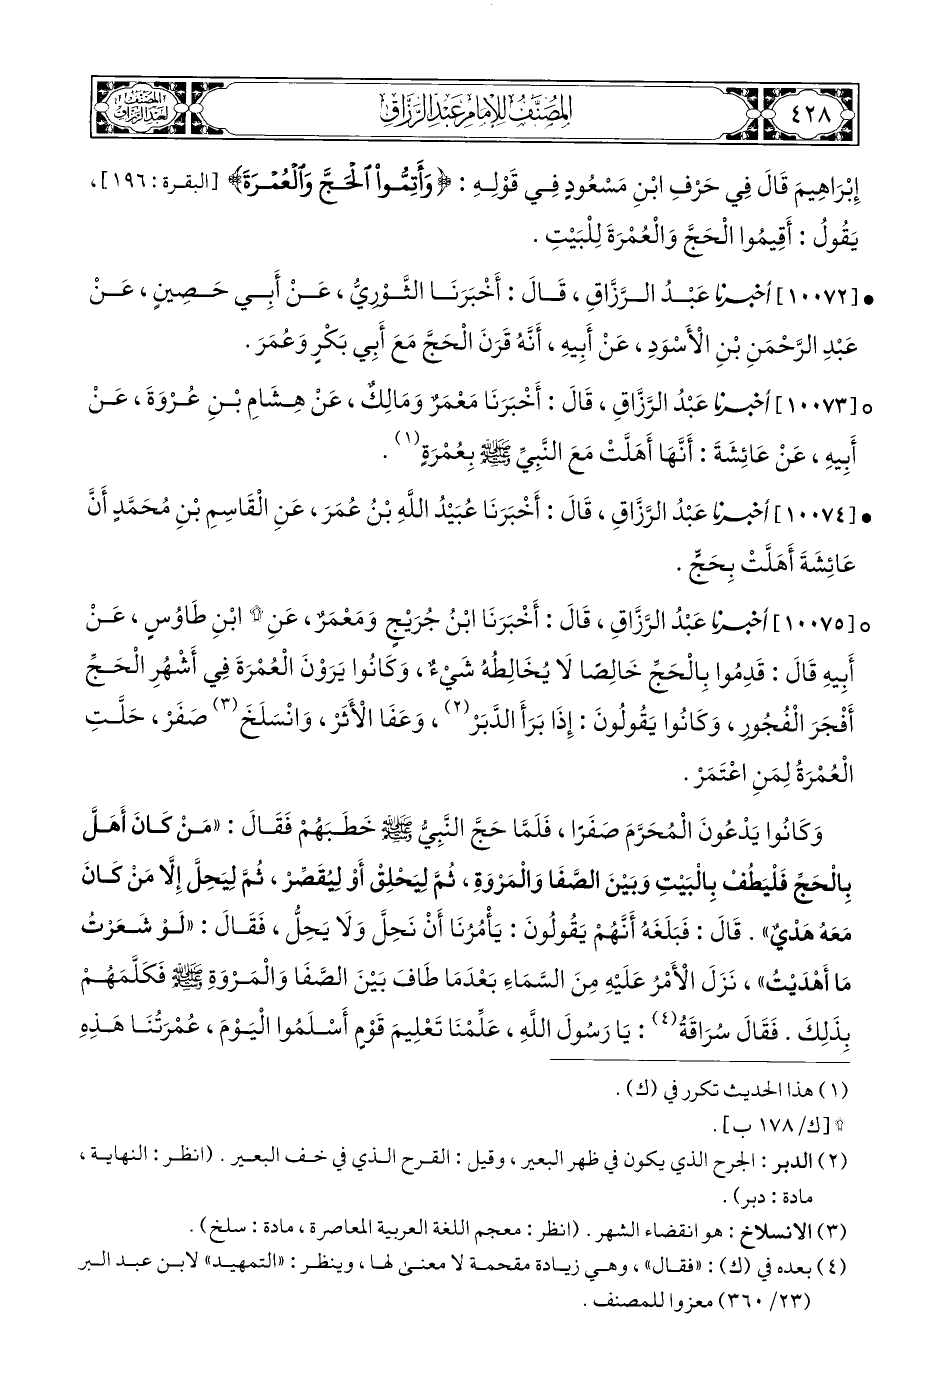 ٤٢٨
المُصَنَّفُ لِلإِمَامِ عَبْدِ الرَّزَّاقِ
المصنف لعبد الرزاق
إِبْرَاهِيمَ قَالَ فِي حَرْفِ ابْنِ مَسْعُودٍ فِي قَوْلِهِ : ﴿وَأَتِمُّواْ ٱلْحَجَّ وَٱلْعُمْرَةَ﴾ [البقرة : ١٩٦] ،
يَقُولُ : أَقِيمُوا الْحَجَّ وَالْعُمْرَةَ لِلْبَيْتِ .
• [١٠٠٧٢] أخبرنا عَبْدُ الرَّزَّاقِ ، قَالَ : أَخْبَرَنَا الثَّوْرِيُّ ، عَنْ أَبِي حَصِينٍ ، عَنْ
عَبْدِ الرَّحْمَنِ بْنِ الْأَسْوَدِ ، عَنْ أَبِيهِ ، أَنَّهُ قَرَنَ الْحَجَّ مَعَ أَبِي بَكْرٍ وَعُمَرَ .
٥ [١٠٠٧٣] أخبرنا عَبْدُ الرَّزَّاقِ ، قَالَ : أَخْبَرَنَا مَعْمَرٌ وَمَالِكٌ ، عَنْ هِشَامِ بْنِ عُرْوَةَ ، عَنْ
أَبِيهِ ، عَنْ عَائِشَةَ : أَنَّهَا أَهَلَّتْ مَعَ النَّبِيِّ ﷺ بِعُمْرَةٍ (١) .
• [١٠٠٧٤] أخبرنا عَبْدُ الرَّزَّاقِ ، قَالَ : أَخْبَرَنَا عُبَيْدُ اللَّهِ بْنُ عُمَرَ ، عَنِ الْقَاسِمِ بْنِ مُحَمَّدٍ أَنَّ
عَائِشَةَ أَهَلَّتْ بِحَجٍّ .
٥ [١٠٠٧٥] أخبرنا عَبْدُ الرَّزَّاقِ ، قَالَ : أَخْبَرَنَا ابْنُ جُرَيْجٍ وَمَعْمَرٌ ، عَنِ ۩ ابْنِ طَاوُسٍ ، عَنْ
أَبِيهِ قَالَ : قَدِمُوا بِالْحَجِّ خَالِصًا لَا يُخَالِطُهُ شَيْءٌ ، وَكَانُوا يَرَوْنَ الْعُمْرَةَ فِي أَشْهُرِ الْحَجِّ
أَفْجَرَ الْفُجُورِ ، وَكَانُوا يَقُولُونَ : إِذَا بَرَأَ الدَّبَرْ (٢) ، وَعَفَا الْأَثَرْ ، وَانْسَلَخَ (٣) صَفَرْ ، حَلَّتِ
الْعُمْرَةُ لِمَنِ اعْتَمَرْ .
وَكَانُوا يَدْعُونَ الْمُحَرَّمَ صَفَرًا ، فَلَمَّا حَجَّ النَّبِيُّ ﷺ خَطَبَهُمْ فَقَالَ : «مَنْ كَانَ أَهَلَّ
بِالْحَجِّ فَلْيَطُفْ بِالْبَيْتِ وَبَيْنَ الصَّفَا وَالْمَرْوَةِ ، ثُمَّ لِيَحْلِقْ أَوْ لِيُقَصِّرْ ، ثُمَّ لِيَحِلَّ إِلَّا مَنْ كَانَ
مَعَهُ هَدْيٌ» . قَالَ : فَبَلَغَهُ أَنَّهُمْ يَقُولُونَ : يَأْمُرُنَا أَنْ نَحِلَّ وَلَا يَحِلُّ ، فَقَالَ : «لَوْ شَعَرْتُ
مَا أَهْدَيْتُ» ، نَزَلَ الْأَمْرُ عَلَيْهِ مِنَ السَّمَاءِ بَعْدَمَا طَافَ بَيْنَ الصَّفَا وَالْمَرْوَةِ ﷺ فَكَلَّمَهُمْ
بِذَلِكَ . فَقَالَ سُرَاقَةُ (٤) : يَا رَسُولَ اللَّهِ ، عَلِّمْنَا تَعْلِيمَ قَوْمٍ أَسْلَمُوا الْيَوْمَ ، عُمْرَتُنَا هَذِهِ
(١) هذا الحديث تكرر في (ك) .
۩ [ك/ ١٧٨ ب] .
(٢) الدبر : الجرح الذي يكون في ظهر البعير ، وقيل : القرح الذي في خف البعير . (انظر : النهاية ،
مادة : دبر) .
(٣) الانسلاخ : هو انقضاء الشهر . (انظر : معجم اللغة العربية المعاصرة ، مادة : سلخ) .
(٤) بعده في (ك) : «فقال» ، وهي زيادة مقحمة لا معنى لها ، وينظر : «التمهيد» لابن عبد البر
(٢٣/ ٣٦٠) معزوا للمصنف .